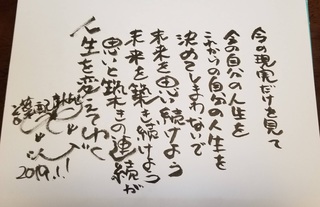 今の現実だけを見て
今の自分の人生を
これからの自分の人生を
決めてしまわないで
未来を思い続けよう
未来を築き続けよう
思いと築きの連続が
人生を変えてゆく
2019.1.1